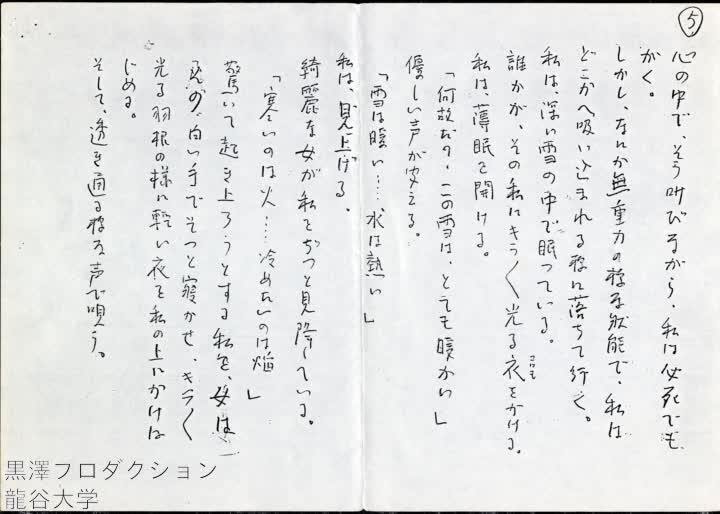 ⑤
心の中で、そう叫びながら、私は必死でも
がく。
しかし、なんか無重力の様な状態で、私は
どこかへ吸い込まれる様に落ちて行く。
私は、深い雪の中で眠っている。
誰かが、その私にキラ〱光る衣をかける。
コロモ
私は、薄眼を開ける。
「何故だろ、この雪は、とても暖かい」
優しい声が答える。
「雪は暖い……氷は熱い」
私は、見上げる。
綺麗な女が私をぢっと見降している。
「寒いのは火……冷めたいのは焔」
驚いて起き上ろうとする私を、女は
白い手でそっと寝かせ、キラ〱
光る羽根の様に軽い衣を私の上にかけは
じめる。
そして、透き通る様な声で唄う。
黒澤プロダクション
龍谷大学